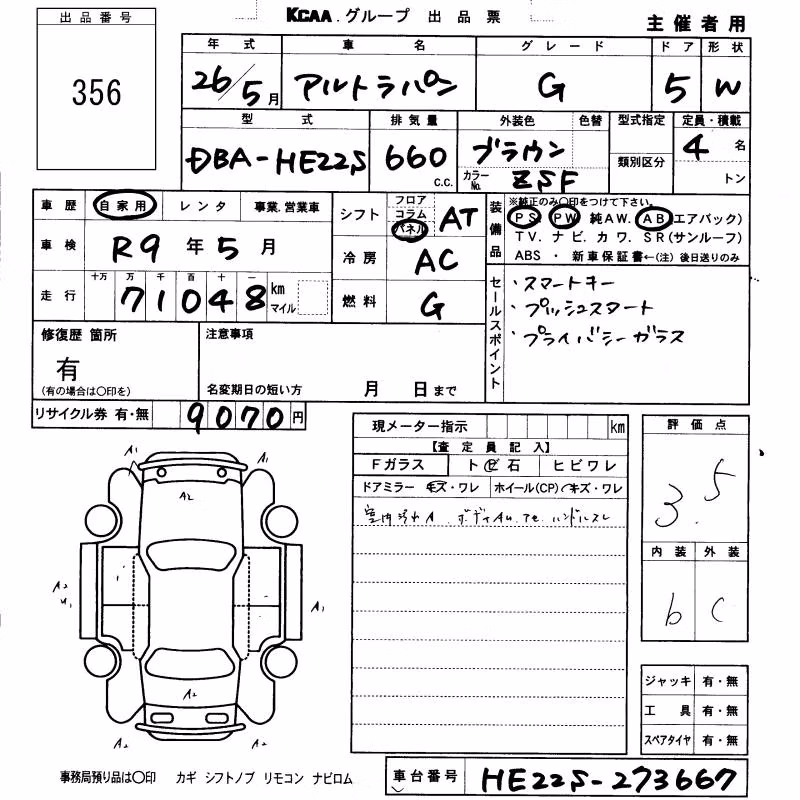 KCAA.グループ 出品票
主催者用
出品番号
356
年式 車名 グレード ドア 形状
26/5月 アルトラパン G 5 W
型式 排気量 外装色 色替 型式指定 定員・積載
DBA-HE22S 660 c.c. ブラウン 4名
カラーNo. ZSF 類別区分 トン
車歴 自家用 レンタ 事業.営業車
シフト フロア コラム パネル AT
装備品 ※純正のみ〇印をつけて下さい。
PS PW 純AW. AB(エアバック)
TV. ナビ. カワ. SR(サンルーフ)
ABS ・ 新車保証書←(注)後日送りのみ
車検 R9年5月
冷房 AC
走行 十万 万 千 百 十 一
71048 km マイル
燃料 G
セールスポイント
・スマートキー
・プッシュスタート
・プライバシーガラス
修復歴 箇所
有
(有の場合は〇印を)
注意事項
名変期日の短い方 月 日まで
リサイクル券 有・無 9070円
現メーター指示 km
【査定員記入】
Fガラス トビ石 ヒビワレ
ドアミラー キズ・ワレ ホイール(CP) キズ・ワレ
ボディAu.Te. ハンドルスレ
評価点
3.5
内装 外装
b C
ジャッキ 有・無
工具 有・無
スペアタイヤ 有・無
A1 A1
A2
A2
A1
A2
A2 A2
事務局預り品は〇印 カギ シフトノブ リモコン ナビロム
車台番号 HE22S-273667